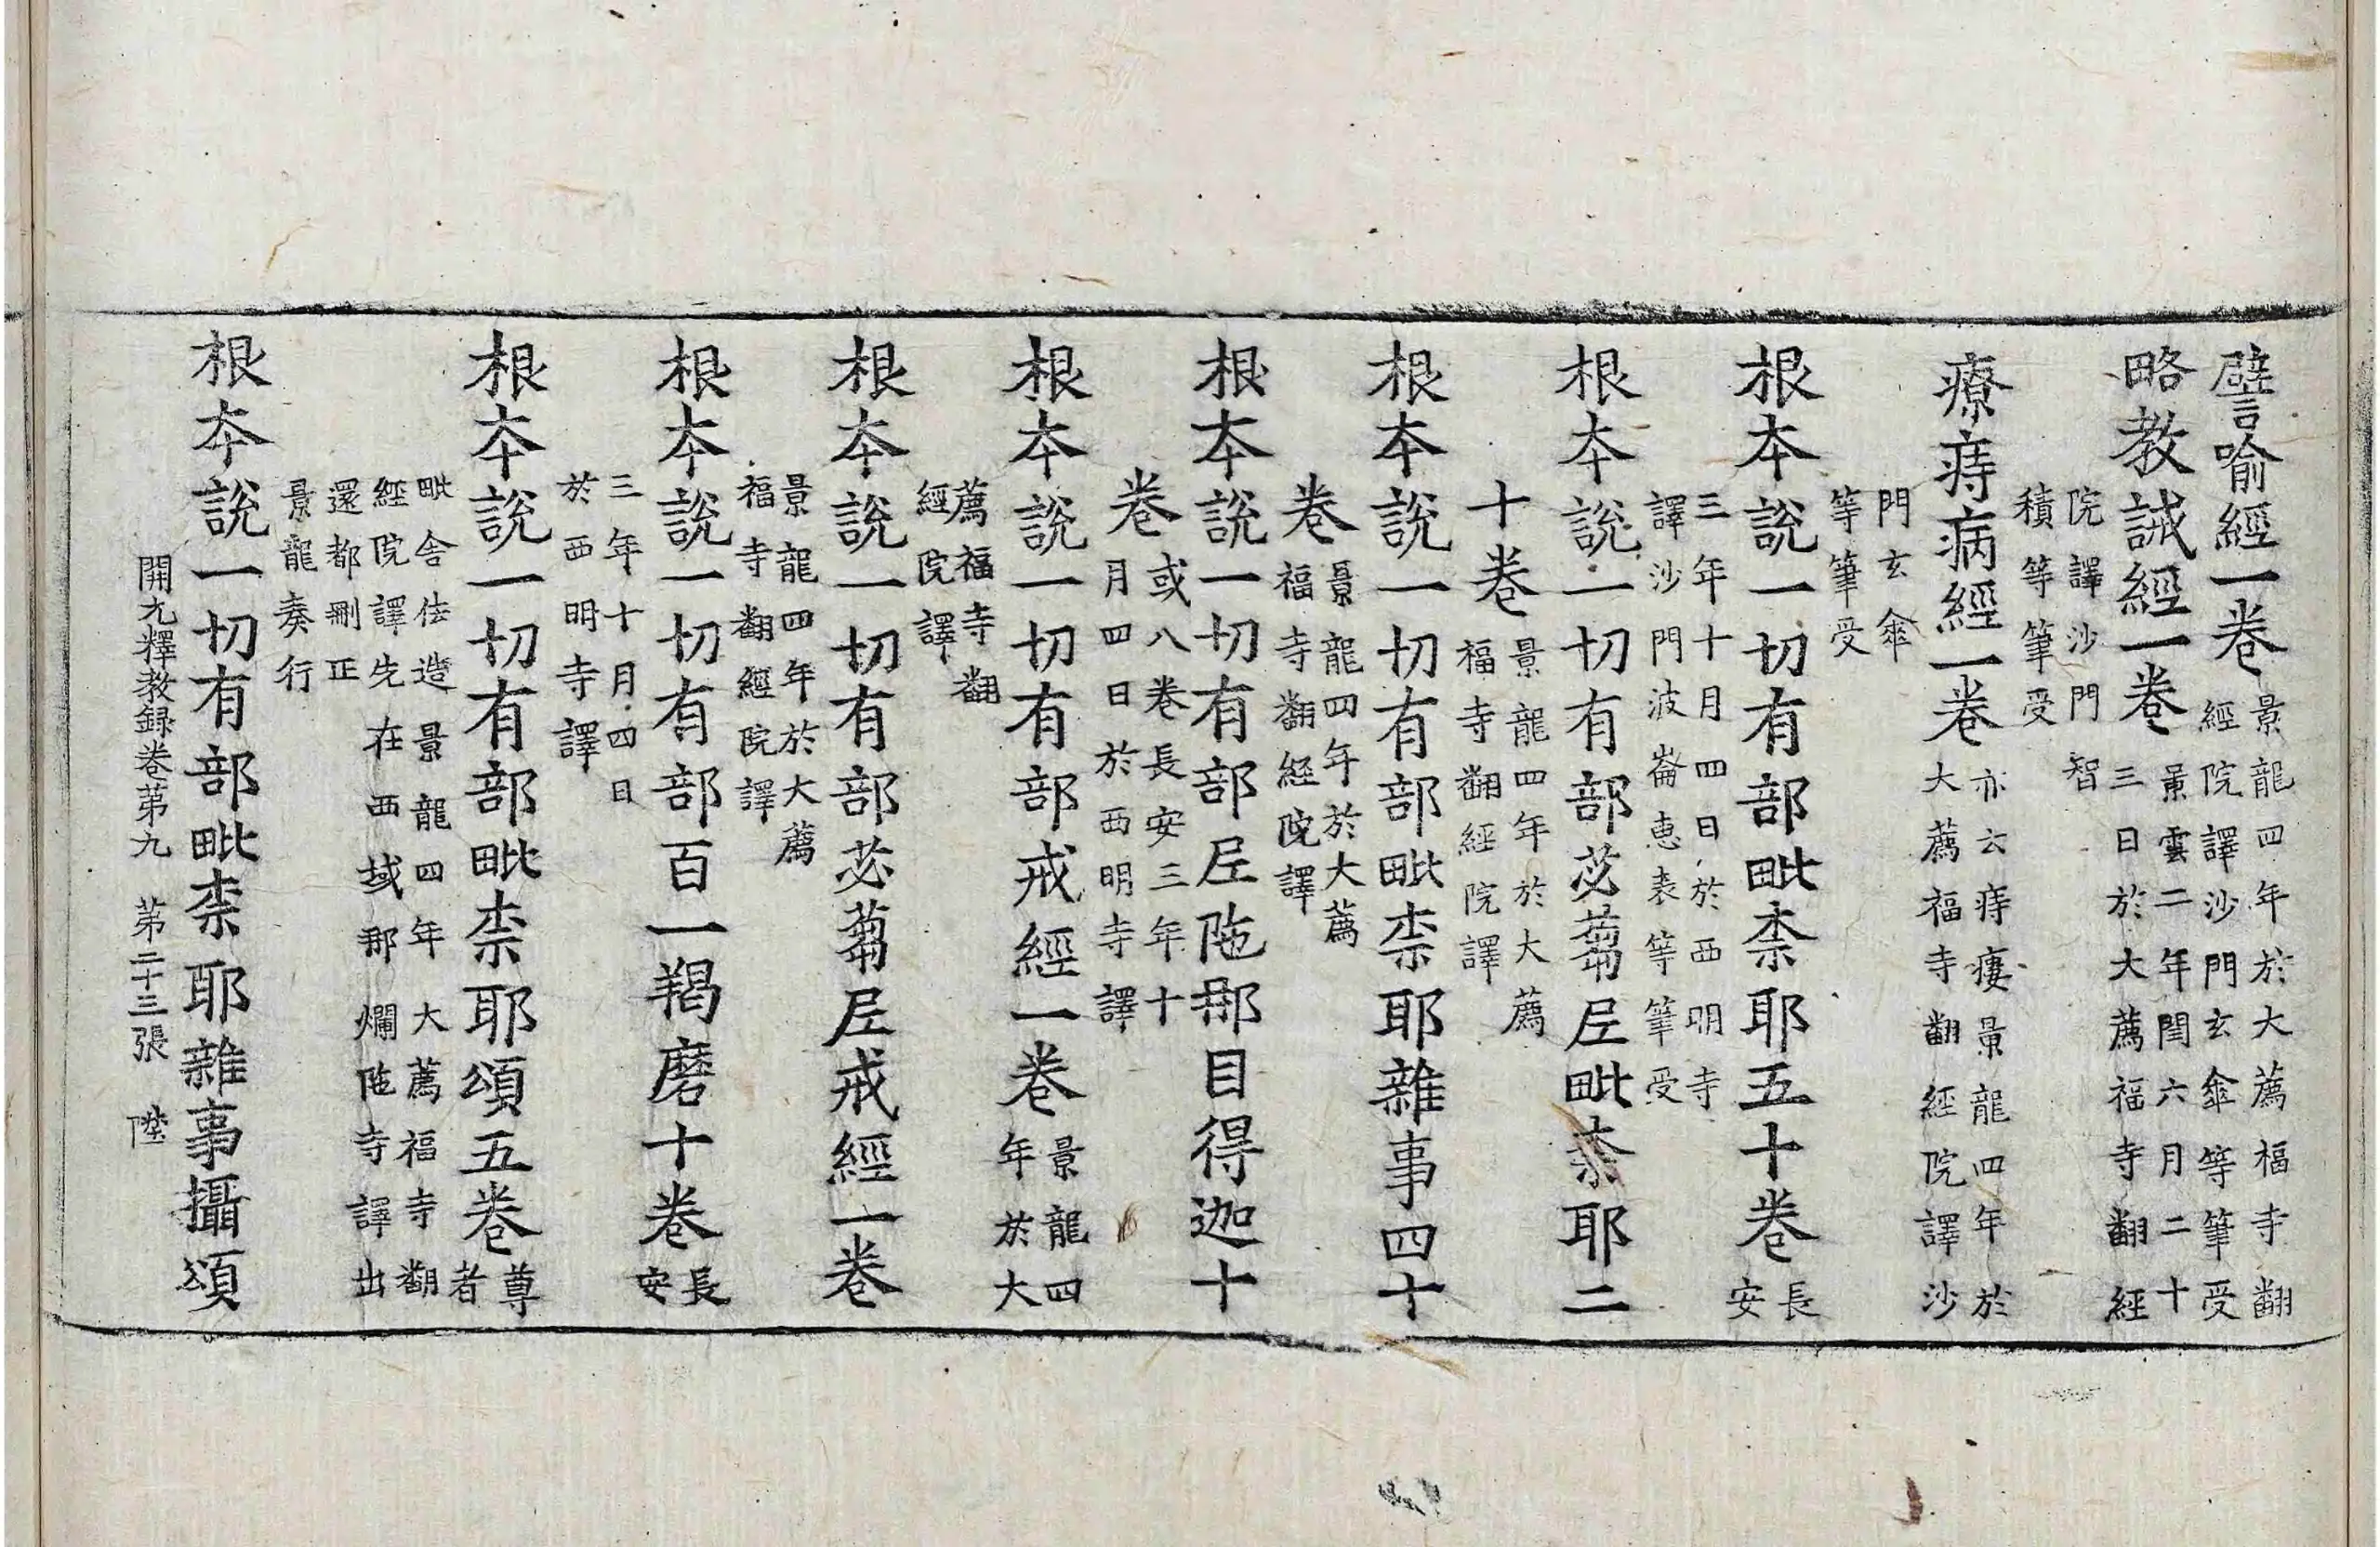 譬喻經一卷景龍四年於大薦福寺翻
經院譯沙門玄傘等筆受
略教誡經一卷景雲二年閏六月二十
三日於大薦福寺翻經
院譯沙門智
積等筆受
療痔病經一卷亦云痔瘻景龍四年於
大薦福寺翻經院譯沙
門玄傘
等筆受
根本說一切有部毗柰耶五十卷長
安
三年十月四日於西明寺
譯沙門波崙惠表等筆受
根本說一切有部苾蒭尼毗柰耶二
十卷景龍四年於大薦
福寺翻經院譯
根本說一切有部毗柰耶雜事四十
卷景龍四年於大薦
福寺翻經院譯
根本說一切有部尼陁那目得迦十
卷或八卷長安三年十
月四日於西明寺譯
根本說一切有部戒經一卷景龍四
年於大
薦福寺翻
經院譯
根本說一切有部苾蒭尼戒經一卷
景龍四年於大薦
福寺翻經院譯
根本說一切有部百一羯磨十卷長
安
三年十月四日
於西明寺譯
根本說一切有部毗柰耶頌五卷尊
者
毗舍佉造景龍四年大薦福寺翻
經院譯先在西域那爛陁寺譯出
還都刪正
景龍奏行
根本說一切有部毗柰耶雜事攝頌
開元釋教録卷第九 第二十三張 陞